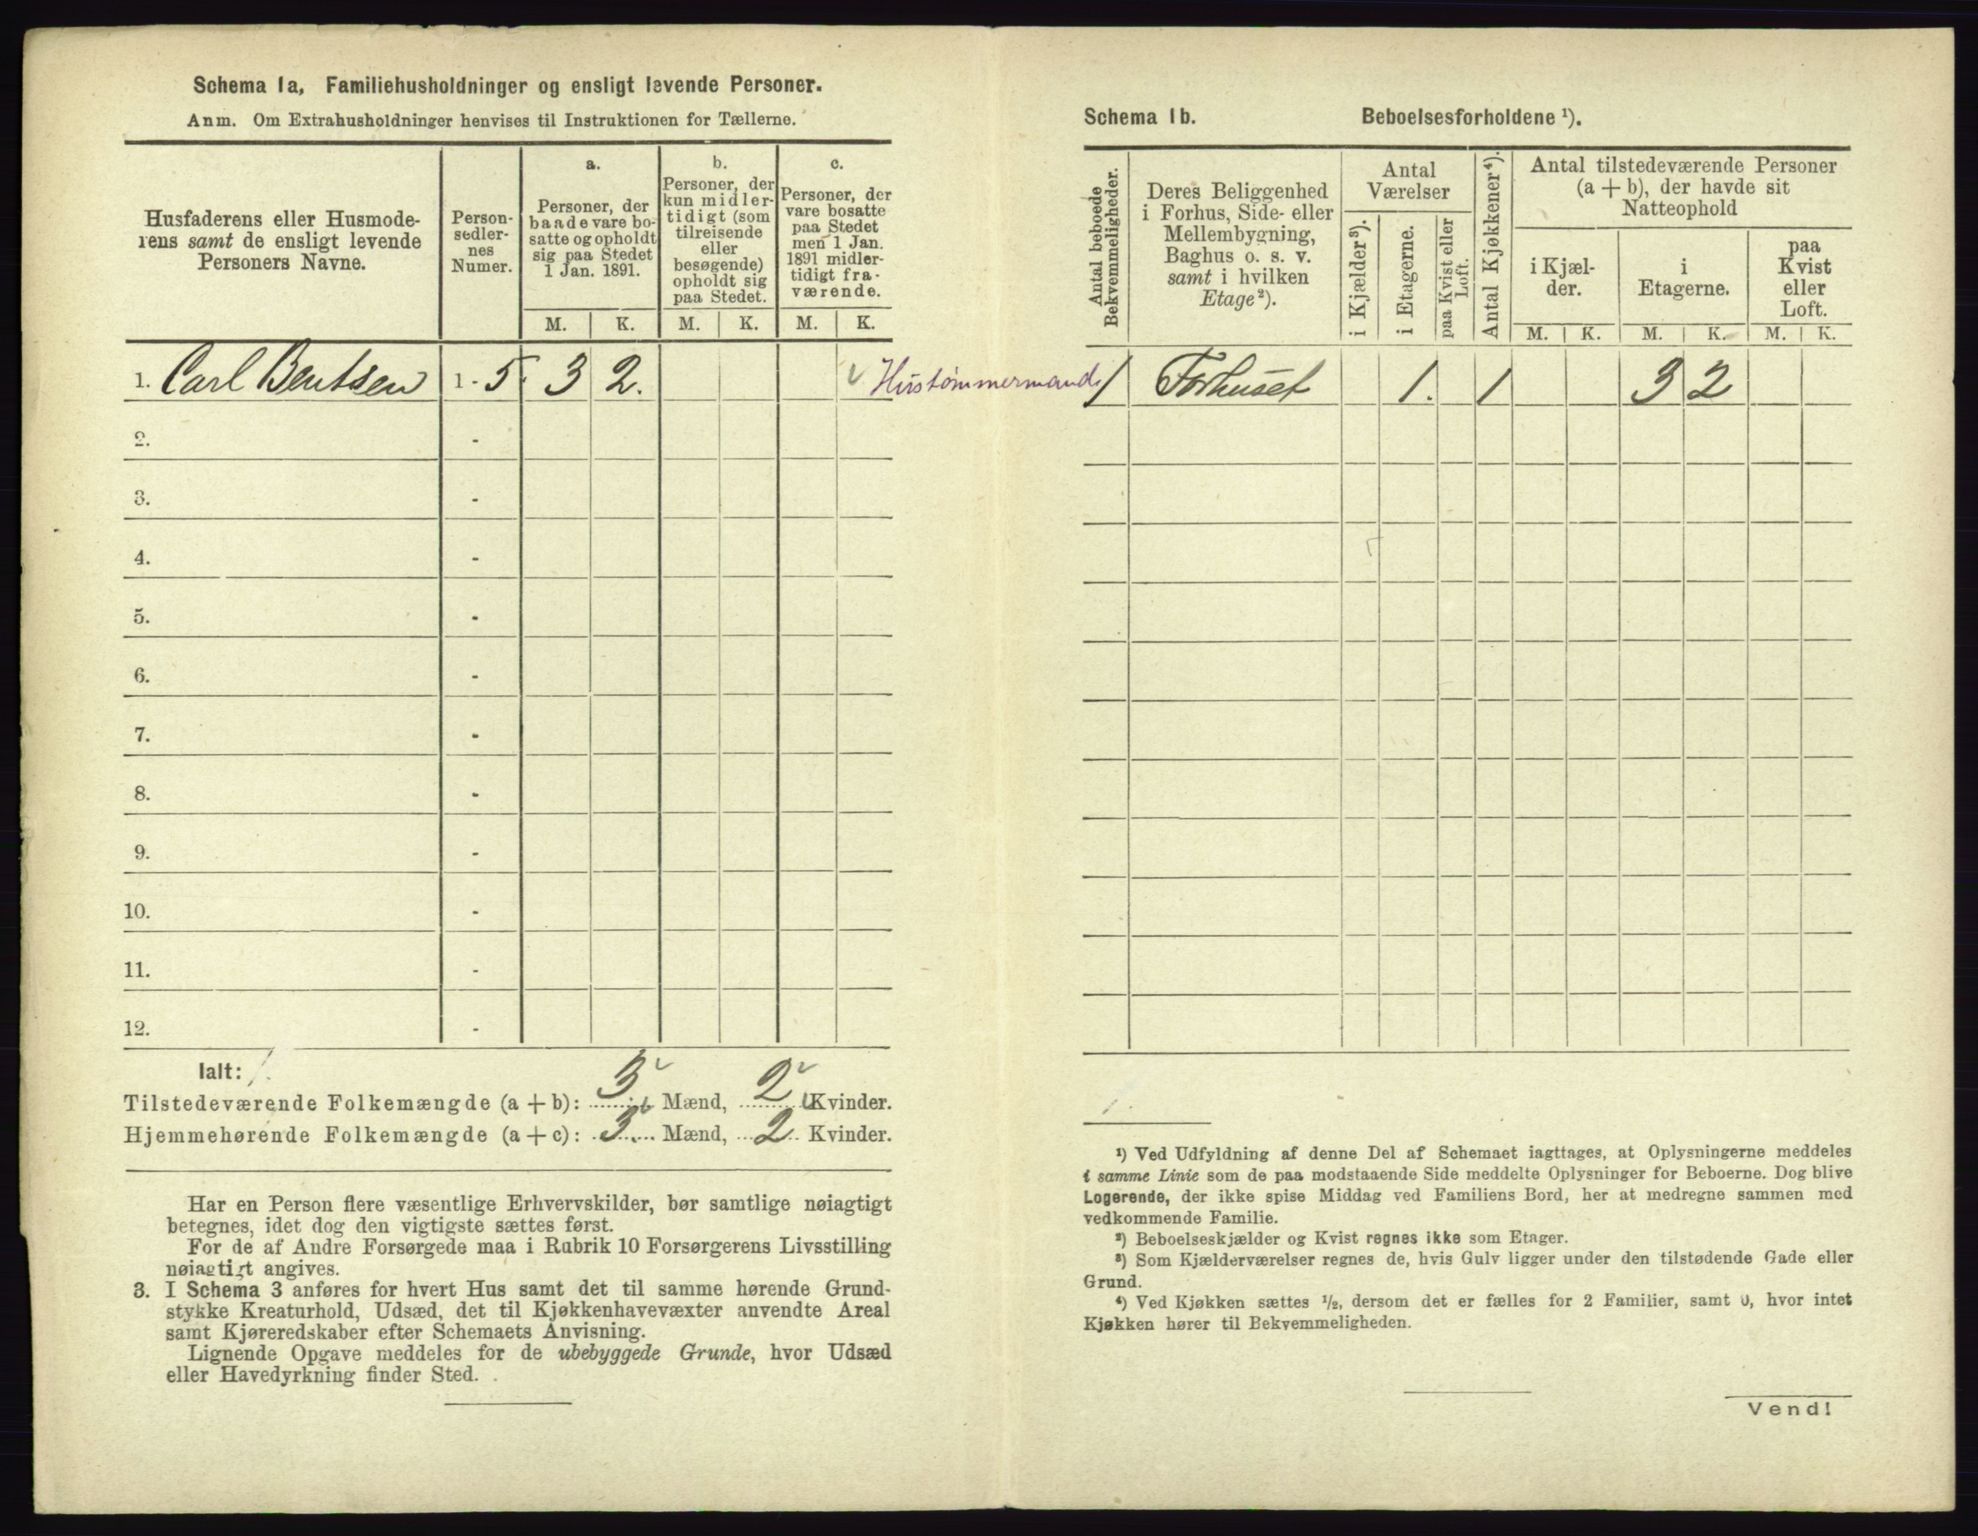 Schema 1a, Familiehusholdninger og ensligt levende Personer.
Anm. Om Extrahusholdninger henvises til Instruktionen for Tællerne.
Husfaderens eller Husmode-
rens samt de ensligt levende
Personers Navne.
Person-
sedler-
nes
Numer.
a.
Personer, der
baade vare bo-
satte og opholdt
sig paa Stedet
1 Jan. 1891.
b.
Personer, der
kun midler-
tidigt (som
tilreisende
eller
besøgende)
opholdt sig
paa Stedet.
c.
Personer, der
vare bosatte
paa Stedet
men 1 Jan.
1891 midler-
tidigt fra-
værende.
M. K. M. K. M. K.
1. Carl Bentsen 1 - 5. 3 2. Hustømmermand
2. -
3. -
4. -
5. -
6. -
7. -
8. -
9. -
10. -
11. -
12. -
Ialt: 1.
Tilstedeværende Folkemængde (a + b): 3 Mænd, 2 Kvinder.
Hjemmehørende Folkemængde (a + c): 3. Mænd, 2 Kvinder.
Har en Person flere væsentlige Erhvervskilder, bør samtlige nøiagtigt
betegnes, idet dog den vigtigste sættes først.
For de af Andre Forsørgede maa i Rubrik 10 Forsørgerens Livsstilling
nøiagtigt angives.
3. I Schema 3 anføres for hvert Hus samt det til samme hørende Grund-
stykke Kreaturhold, Udsæd, det til Kjøkkenhavevæxter anvendte Areal
samt Kjøreredskaber efter Schemaets Anvisning.
Lignende Opgave meddeles for de ubebyggede Grunde, hvor Udsæd
eller Havedyrkning finder Sted.
Schema 1b. Beboelsesforholdene ¹).
Antal beboede
Bekvemmeligheder.
Deres Beliggenhed
i Forhus, Side- eller
Mellembygning,
Baghus o. s. v.
samt i hvilken
Etage²).
Antal
Værelser
i Kjælder³).
i Etagerne.
paa Kvist eller
Loft.
Antal Kjøkkener⁴).
Antal tilstedeværende Personer
(a + b), der havde sit
Natteophold
i Kjæl-
der.
i
Etagerne.
paa
Kvist
eller
Loft.
M. K. M. K. M. K.
1 Forhuset 1. 1 3 2
1.
¹) Ved Udfyldning af denne Del af Schemaet iagttages, at Oplysningerne meddeles
i samme Linie som de paa modstaaende Side meddelte Oplysninger for Beboerne. Dog blive
Logerende, der ikke spise Middag ved Familiens Bord, her at medregne sammen med
vedkommende Familie.
²) Beboelseskjælder og Kvist regnes ikke som Etager.
³) Som Kjælderværelser regnes de, hvis Gulv ligger under den tilstødende Gade eller
Grund.
⁴) Ved Kjøkken sættes ½, dersom det er fælles for 2 Familier, samt 0, hvor intet
Kjøkken hører til Bekvemmeligheden.
Vend!